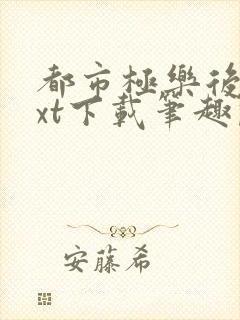 都市極樂後
xt下載筆趣
安藤希